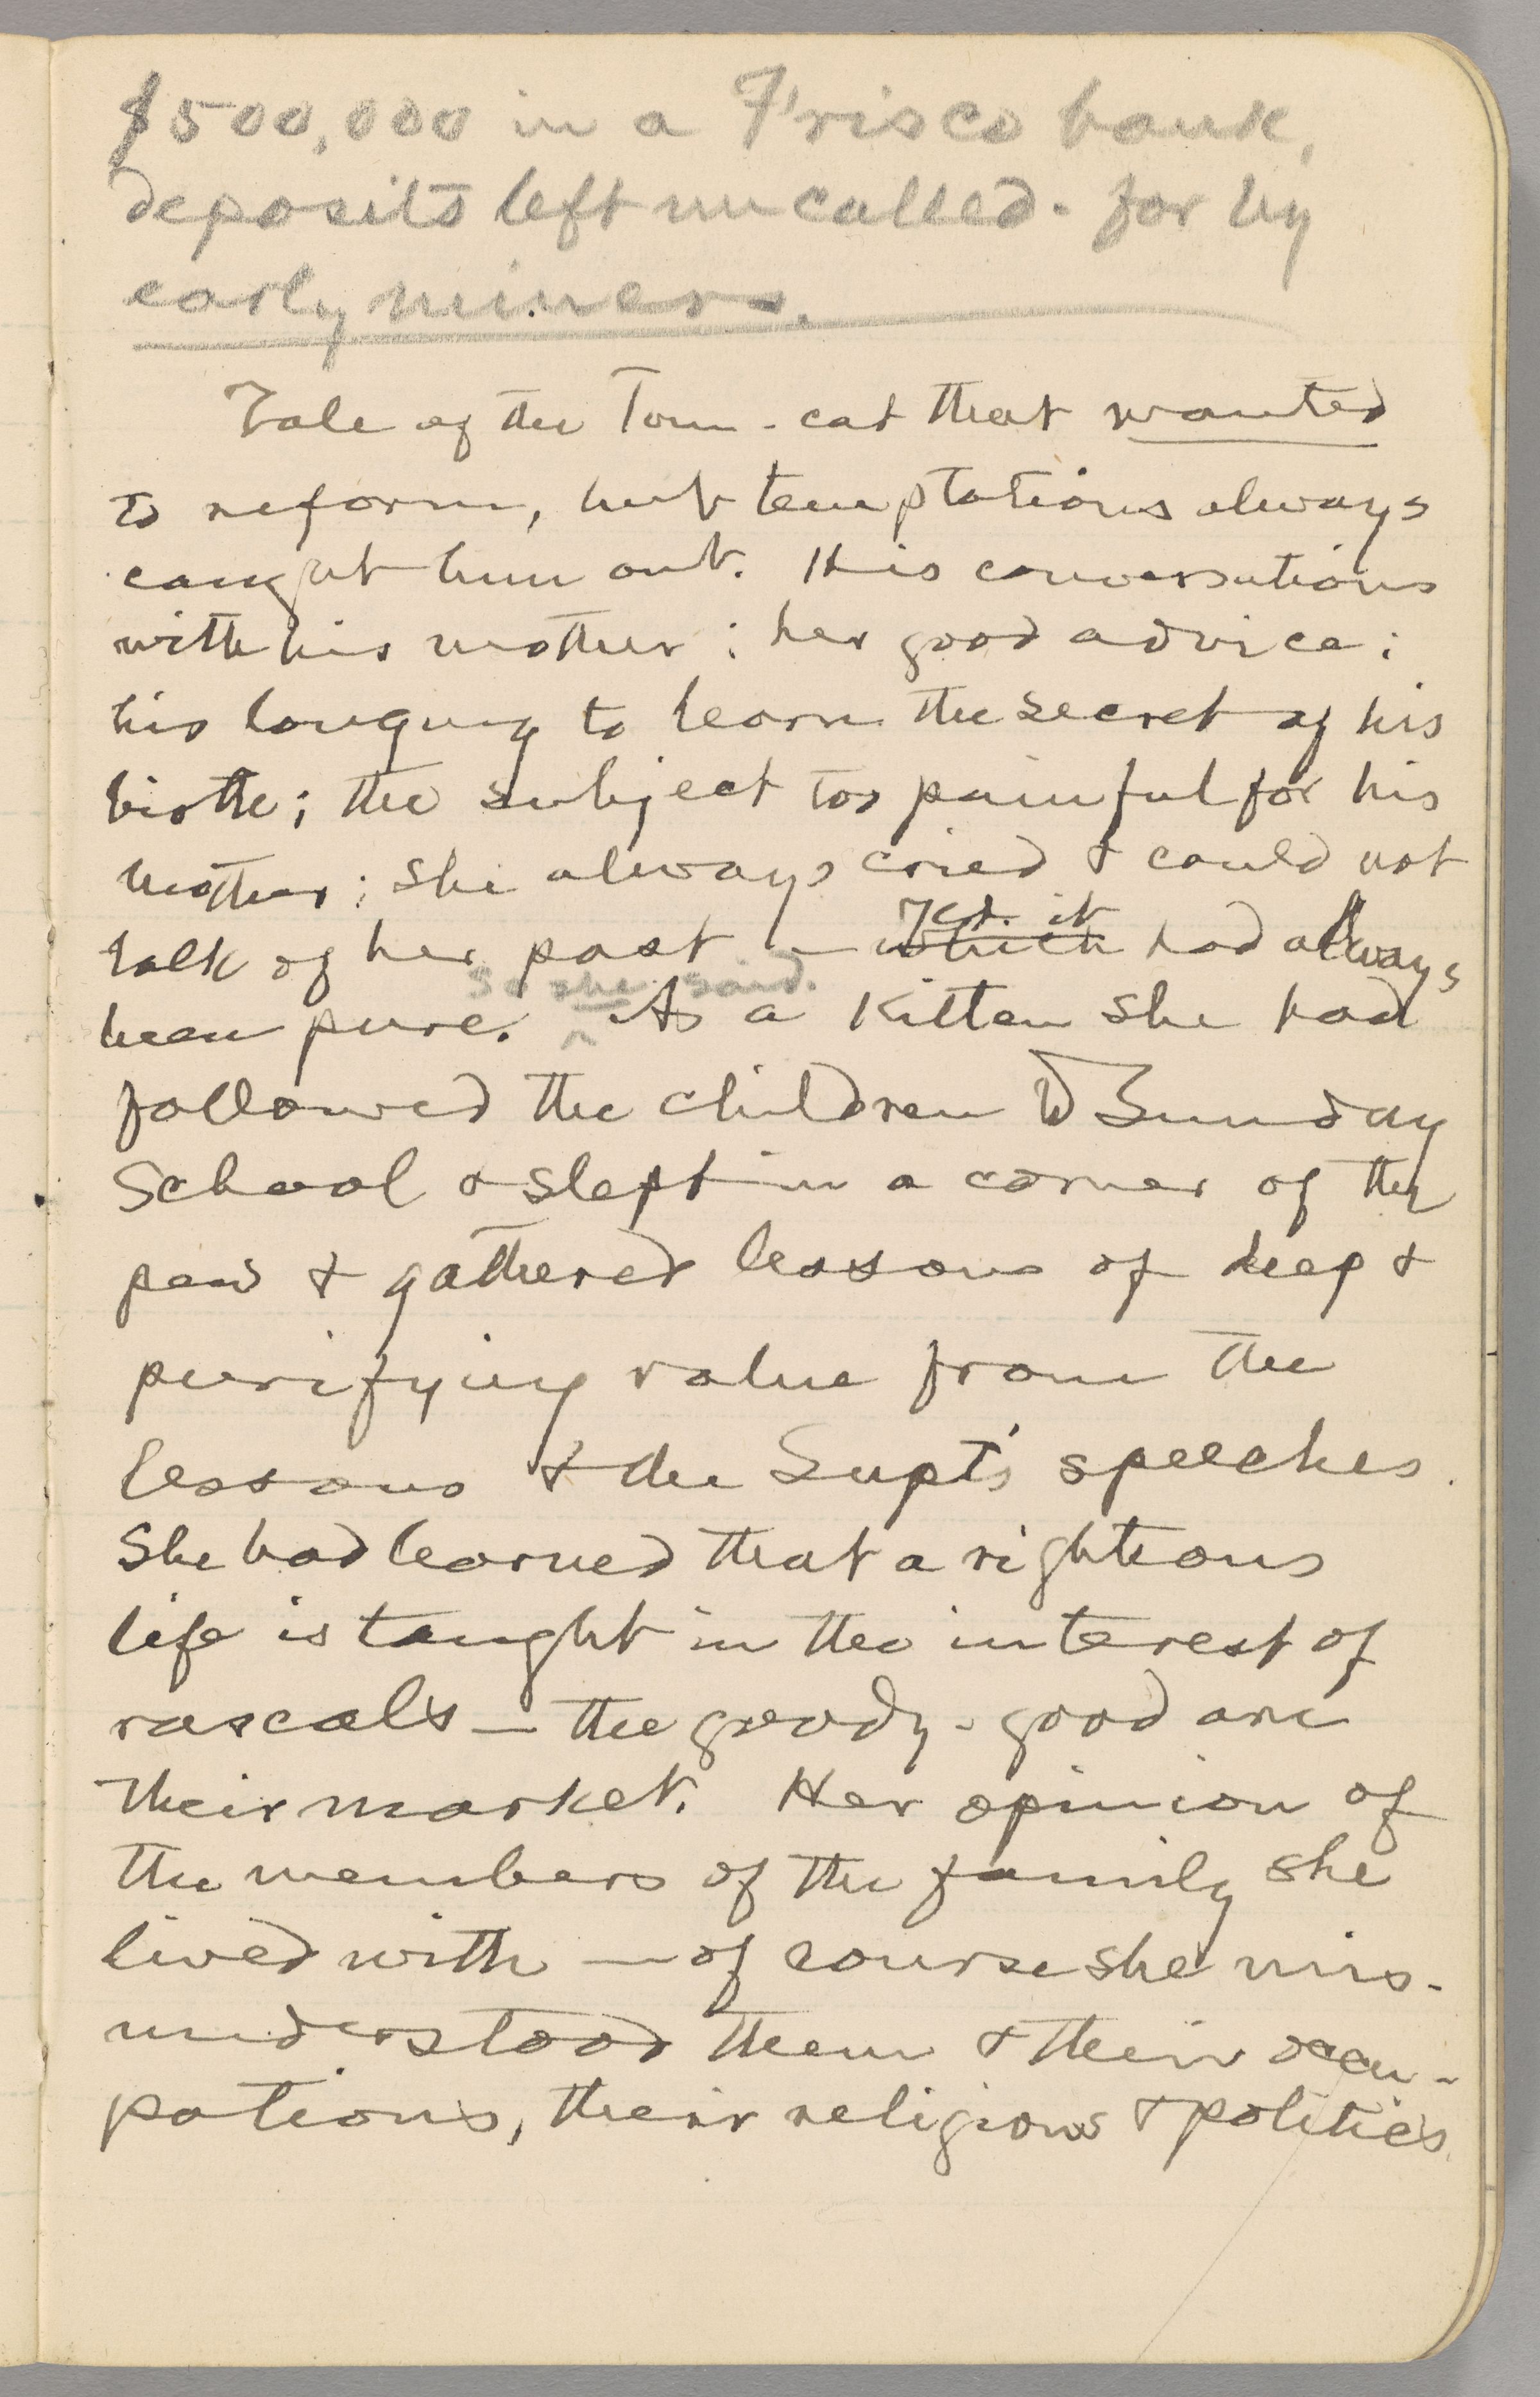 $500,000 in a 'Frisco bank,
deposits left uncalled-for by
early miners.
Tale of the Tom-cat that wanted
to reform, but temptations always
caught him out. His conversations
with his mother; her good advice;
his longing to learn the secret of his
birth; the subject too painful for his
mother; she always cried & could not
Yet it
talk of her past — which had always
so she said.
been pure. ^ As a kitten she had
followed the children to Sunday
School & slept in a corner of the
pew & gathered lessons of deep &
purifying value from the
lessons & the Supt's speeches.
She had learned that a righteous
life is taught in the interest of
rascals — the goody-good are
their market. Her opinion of
the members of the family she
lived with — of course she mis-
understood them & their occu-
pations, their religions & politics.